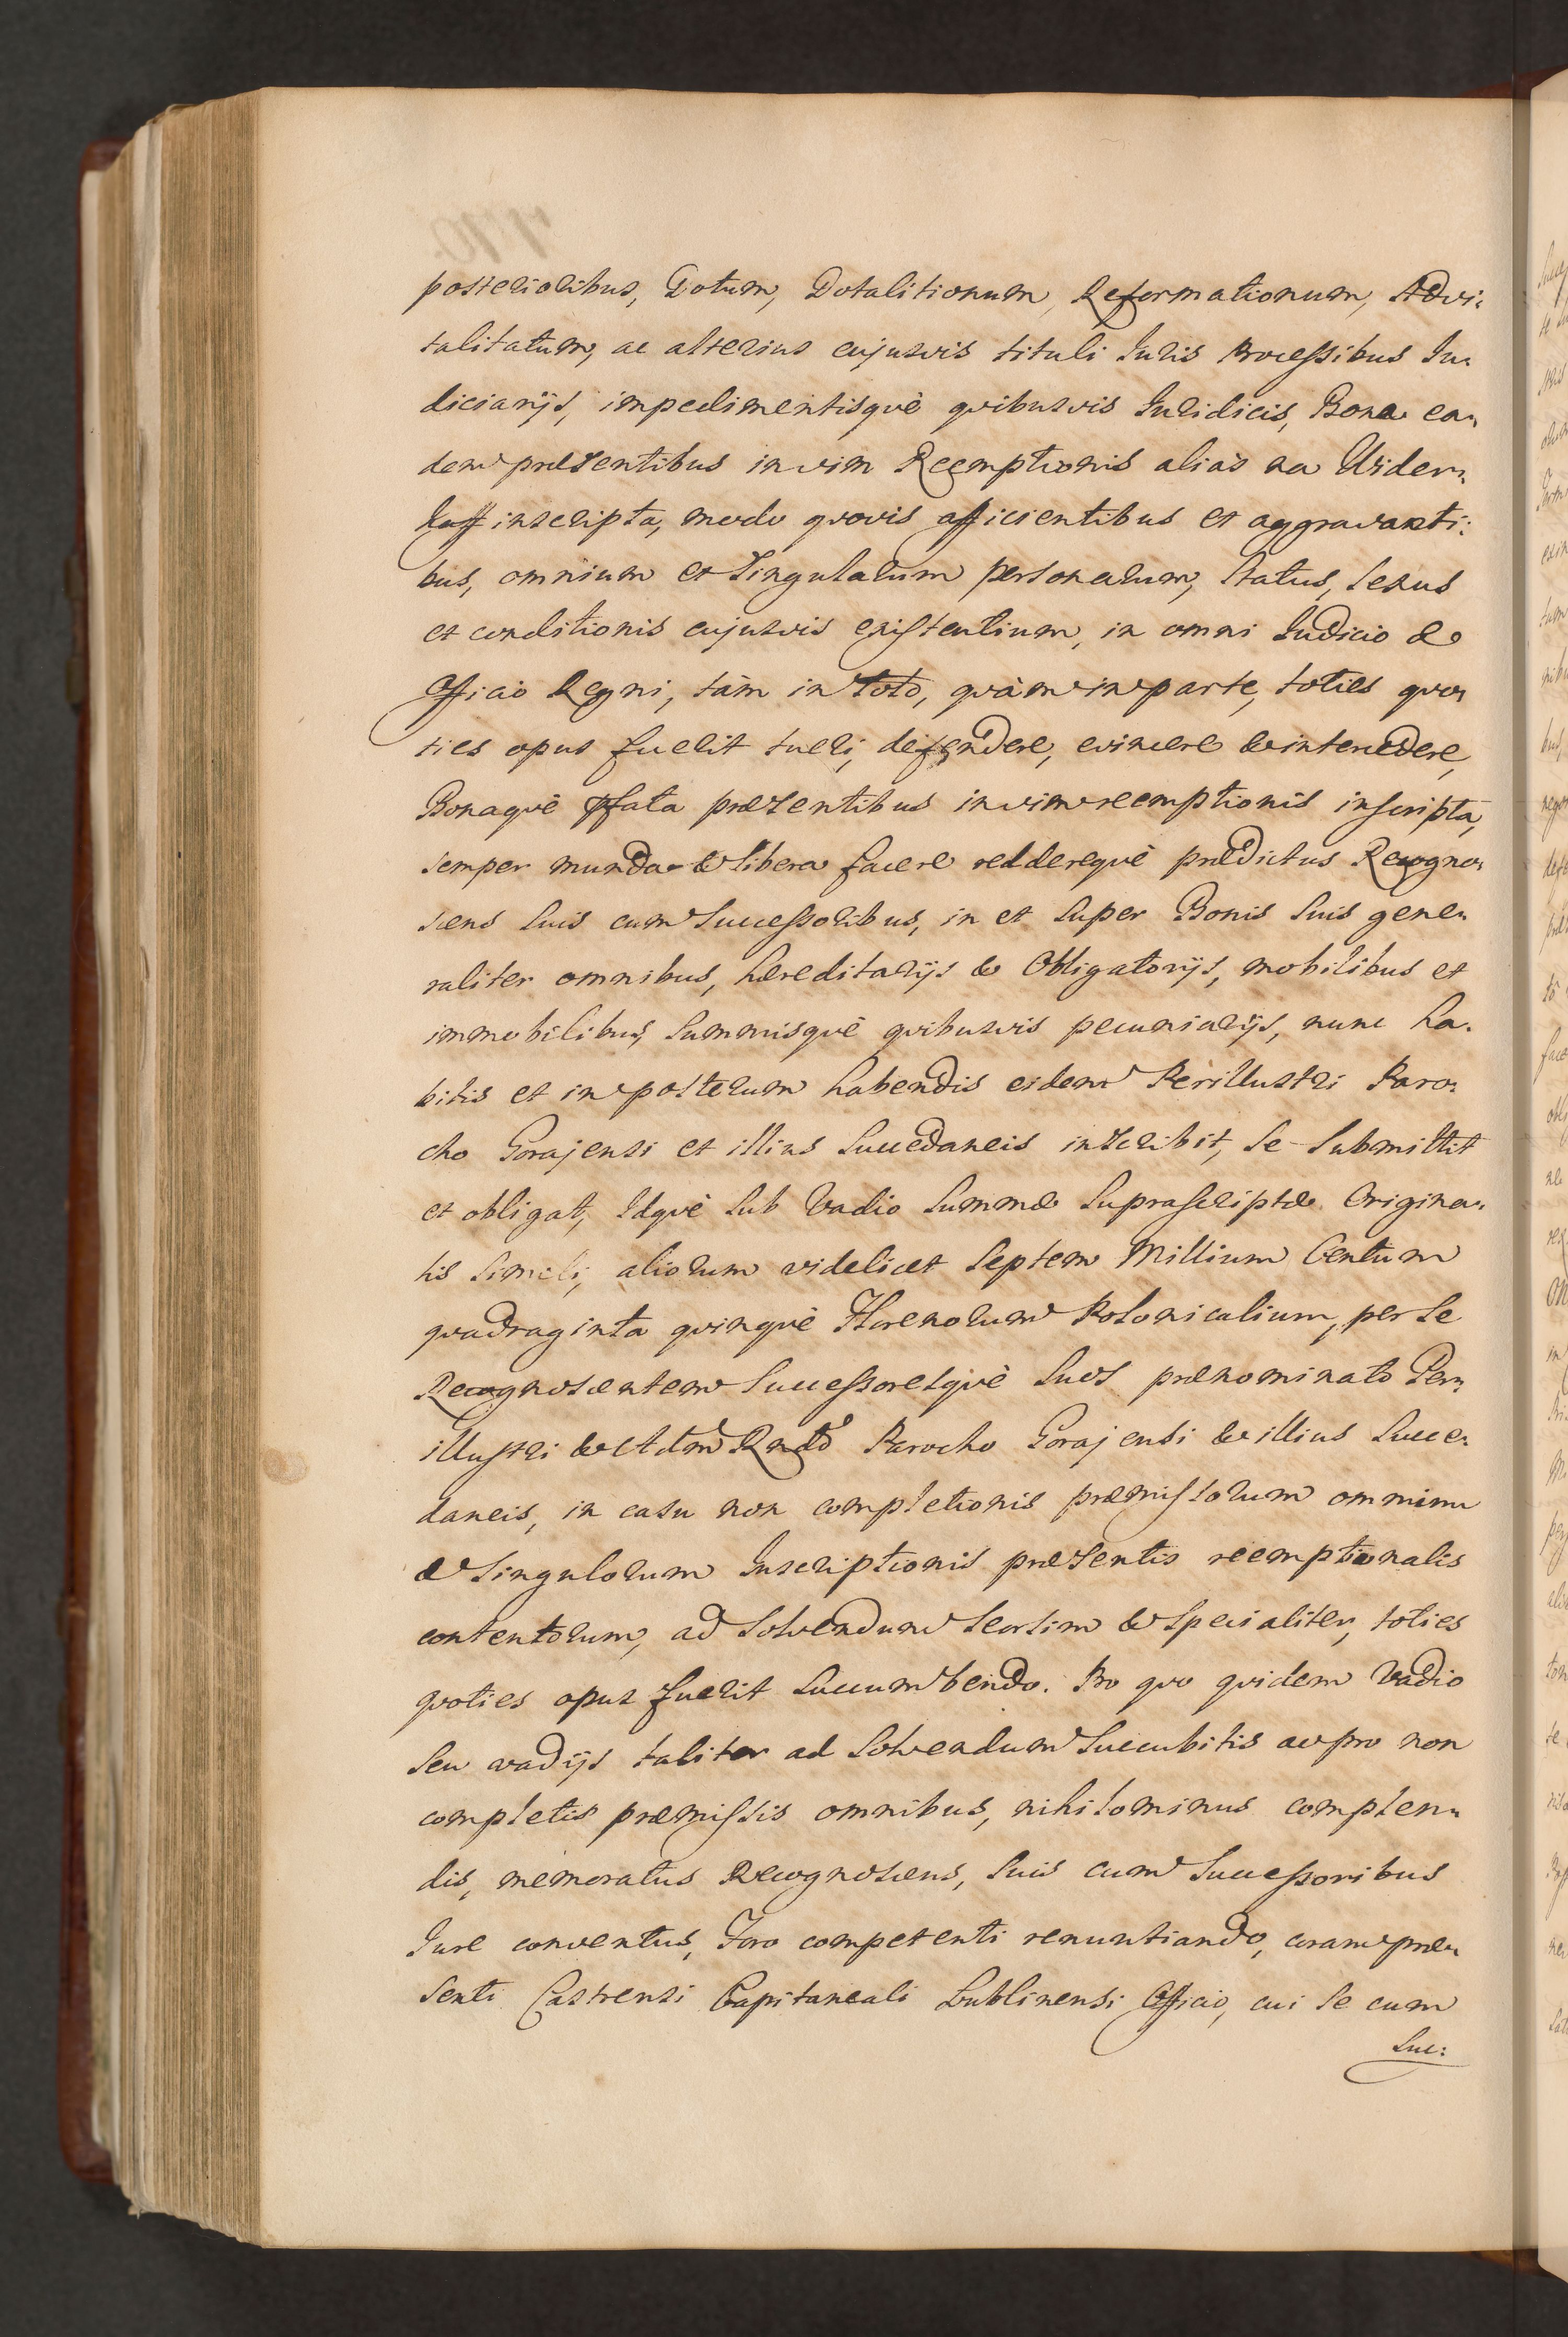 posterioribus, Dotum, Dotalitionum, Reformationum, Advi:
talitatum, ac alterius cujusvis tituli Iuris Processibus Iu:
diciarijs, impedimentisquè quibusvis Iuridicis, Bona ea:
dem præsentibus in vim Reemptionis aliàs na Wider:
kaff inscripta, modo quovis afficientibus et aggravanti:
bus, omnium et singularum personarum, status, sexus
et conditionis cujusvis existentium, in omni Iudicio &
Officio Regni, tàm in toto, quàm in parte, toties quo:
ties opus fuerit tueri, defendere, evincere & intercedere,
Bonaquè pfata præsentibus in vim reemptionis inscripta,
semper munda & libera facere reddereque prædictus Recogno:
scens suis cum Successoribus, in et super Bonis suis gene:
raliter omnibus, hæreditarijs & Obligatorijs, mobilibus et
immobilibus, Summisquè quibusvis pecuniarijs, nunc ha:
bitis et in posterum habendis eidem Perillustri Paro:
cho Gorajensi et illius Succedaneis inscribit, se submittit
et obligat, Idquè sub Vadio Summæ suprascriptæ Origina:
lis simili, aliorum videlicet Septem Millium Centum
quadraginta quinquè Florenorum Polonicalium, per se
Recognoscentem Successoresquè suos prænominato Per:
illustri & Adm Rndo Parocho Gorajensi & illius Succe:
daneis, in casu non completionis præmissorum omnium
& singulorum Inscriptionis præsentis reemptionalis
contentorum, ad solvendum seorsim & specialiter, toties
quoties opus fuerit succumbendo. Pro quo quidem Vadio
seu vadijs taliter ad solvendum succubitis ac pro non
completis præmissis omnibus, nihilominus complen:
dis, memoratus Recognoscens, suis cum Successoribus
Iure conventus, Foro competenti renuntiando, coram præ:
senti Castrensi Capitaneali Lublinensi Officio, cui se cum
Suc: